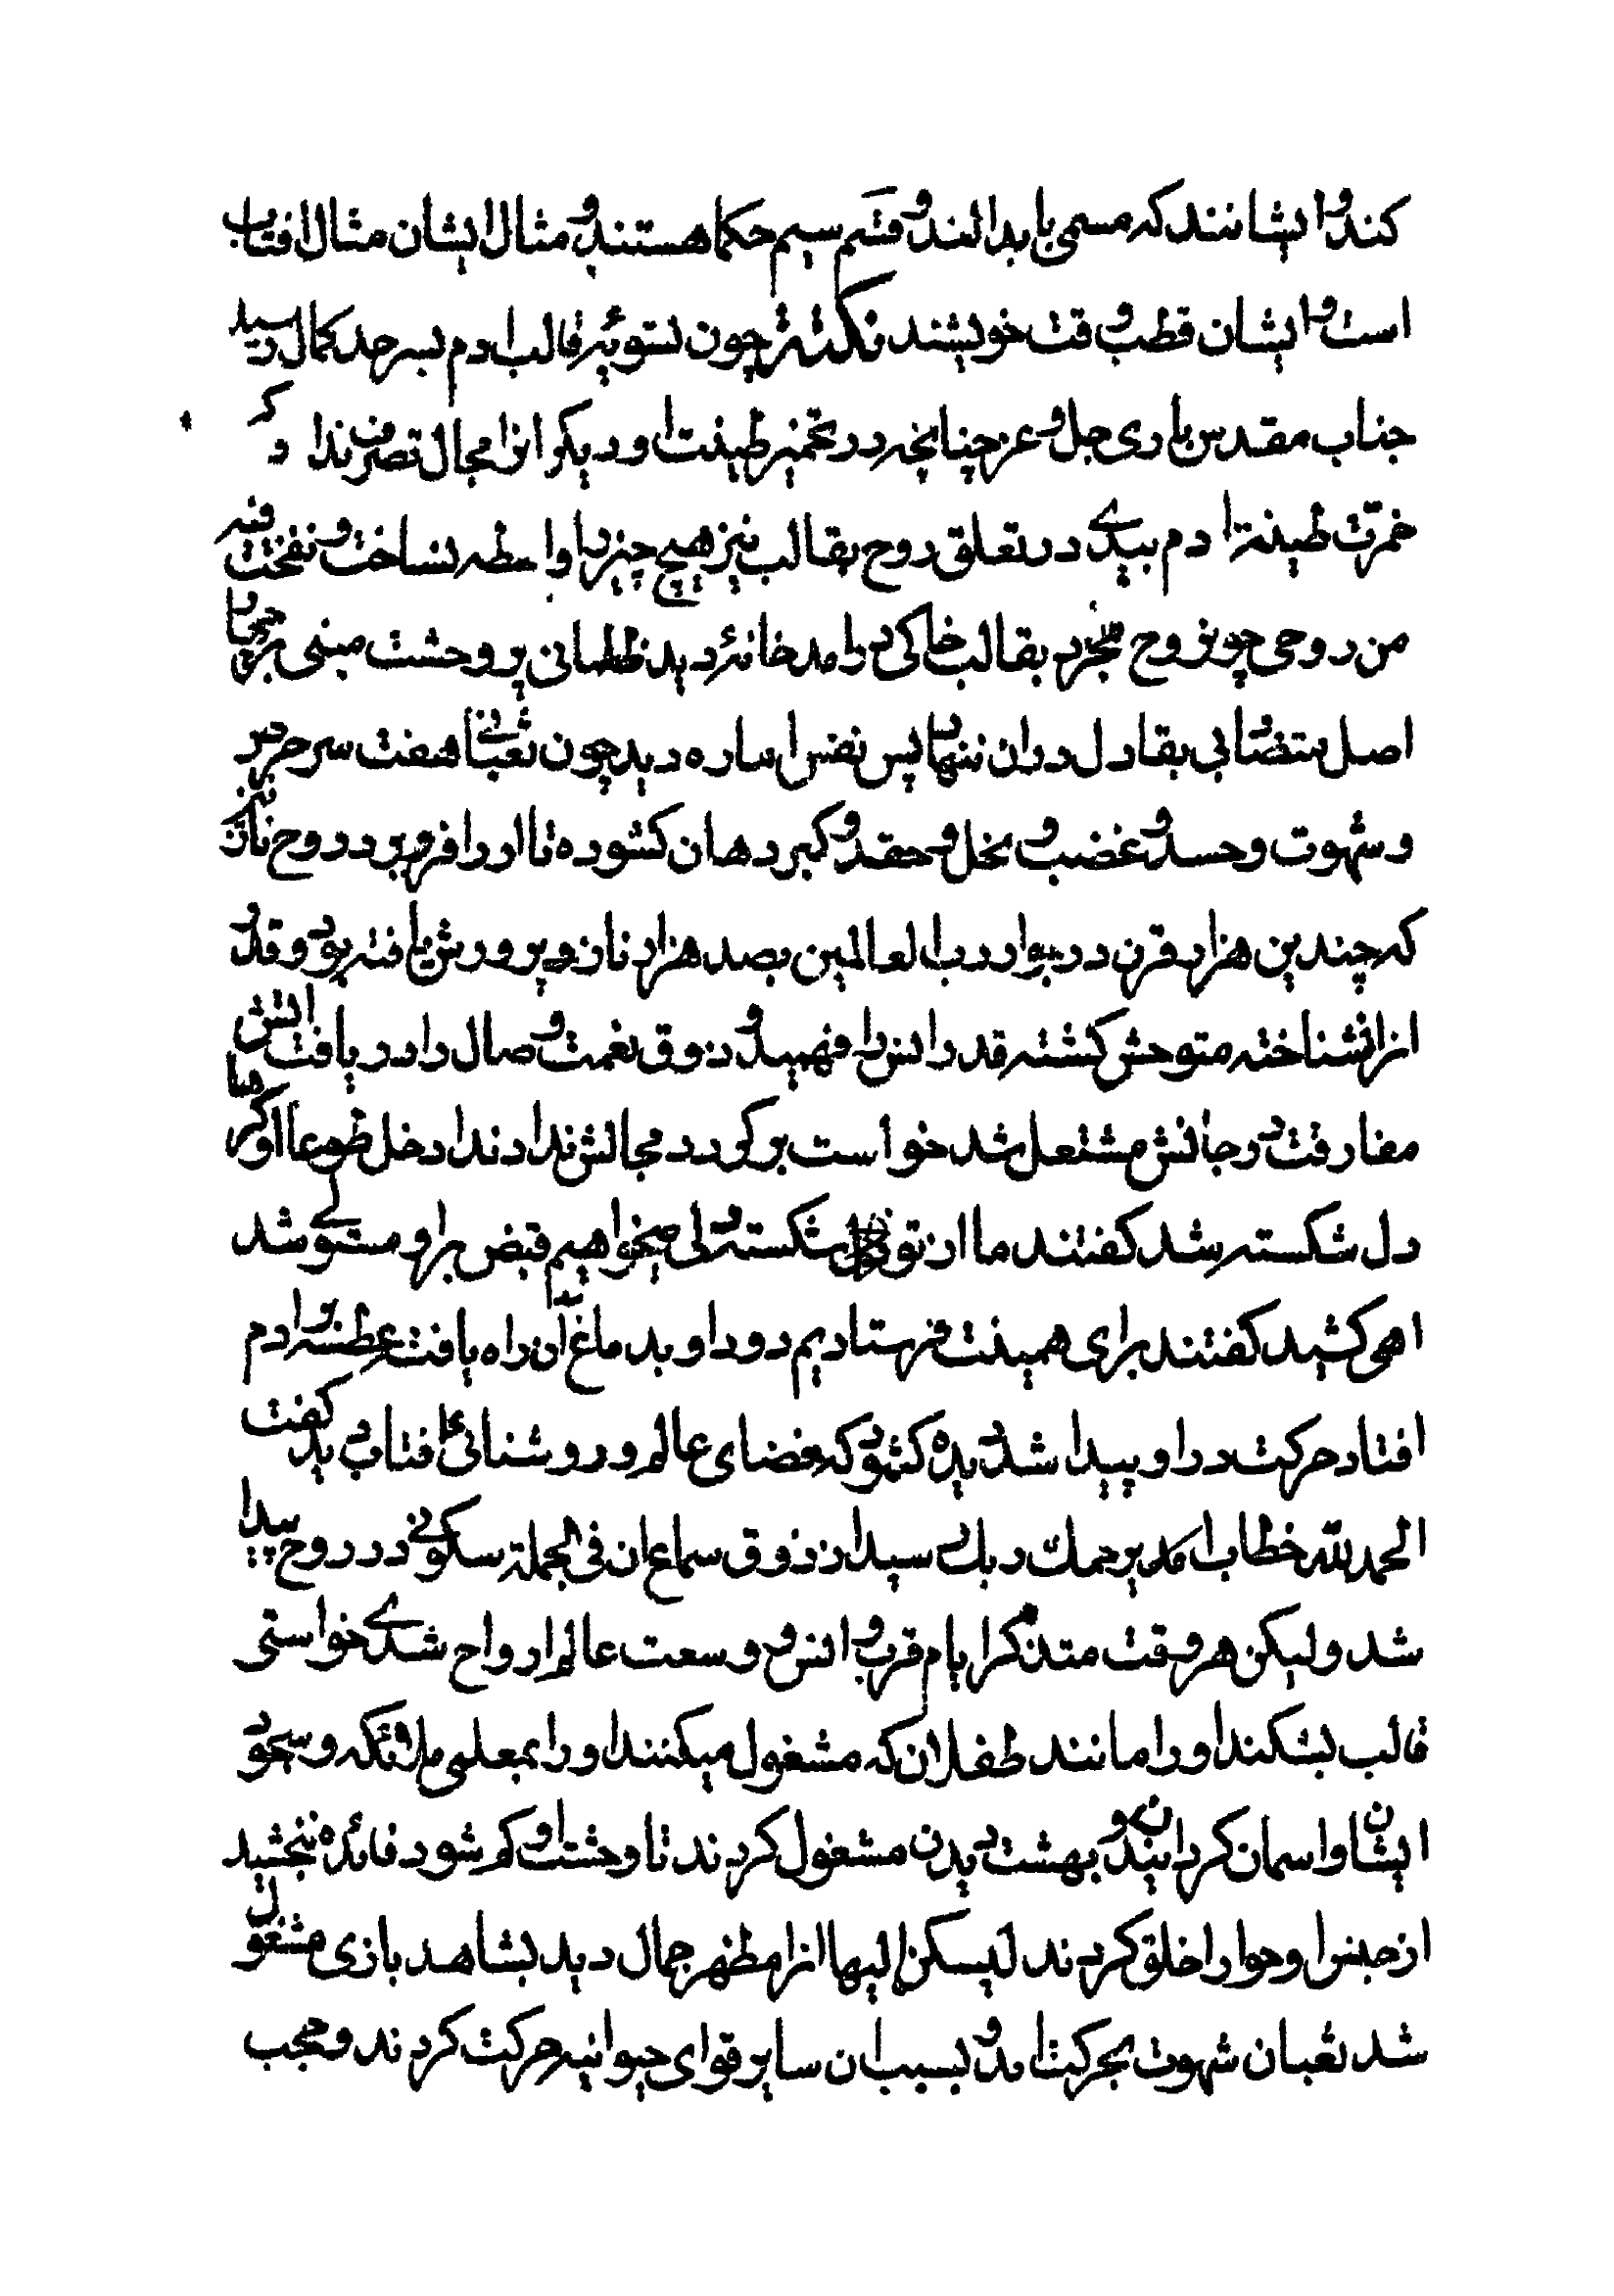 کند و ایشانند که مسمی بابدالند و قسم سیم حکما هستند و مثال ایشان مثال افتاب
است و ایشان قطب وقت خویشند نکته چون تسویه قالب ادم بسرحد کمال رسید
جناب مقدس باری جل و عز چنانچه در تخمیر طینت او دیکرانرا مجال تصرف نداد که
خمرت طینة ادم بیدی در تعلق روح بقالب نیز هیچ چیز را واسطه نساخت و نفخت فیه
من روحی چون روح مجرد بقالب خاکی درامد خانهٔ دید ظلمانی پر وحشت مبنی بر چهار
اصل متضاد بقا دل دران ننهاد پس نفس اماره دید چون ثعبانی هفت سر حرص
و شهوت و حسد و غضب و بخل و حقد و کبر دهان کشوده تا او را فرو برد روح نازنین
که چندین هزار قرن در جوار رب العالمین بصد هزار ناز پرورش یافته بود و قدر
انرا نشناخته متوحش کشته قدر انس را فهمید و ذوق نعمت وصال را دریافت اتش
مفارقت در جانش مشتعل شد خواست بر کردد مجالش ندادند ادخل طوعا او کرها
دل شکسته شد کفتند ما از تو شکسته دلی میخواهیم قبض بر او مستولی شد
اهی کشید کفتند برای همینت فرستادیم دود او بدماغ ان راه یافت عطسه بر ادم
افتاد حرکت در او پیدا شد دیده کشود که فضای عالم و روشنائی افتاب دید کفت
الحمد لله خطاب امد یرحمك ربك رسید از ذوق سماع ان فی الجملة سکونی در روح پیدا
شد ولیکن هر وقت متذکر ایام قرب و انس و وسعت عالم ارواح شدی خواستی
قالب بشکند او را مانند طفلان که مشغول میکنند او را بمعلمی ملائکه و سجود
ایشان او اسمان کردانیدن و بهشت دیدن مشغول کردند تا وحشت او کم شود فائده نبخشید
از جنس او حوا را خلق کردند لیسکن الیها انرا مظهر جمال دید بشاهد بازی مشغول
شد ثعبان شهوت بحرکت امد و بسبب ان سایر قوای حیوانیه حرکت کردند و حجب